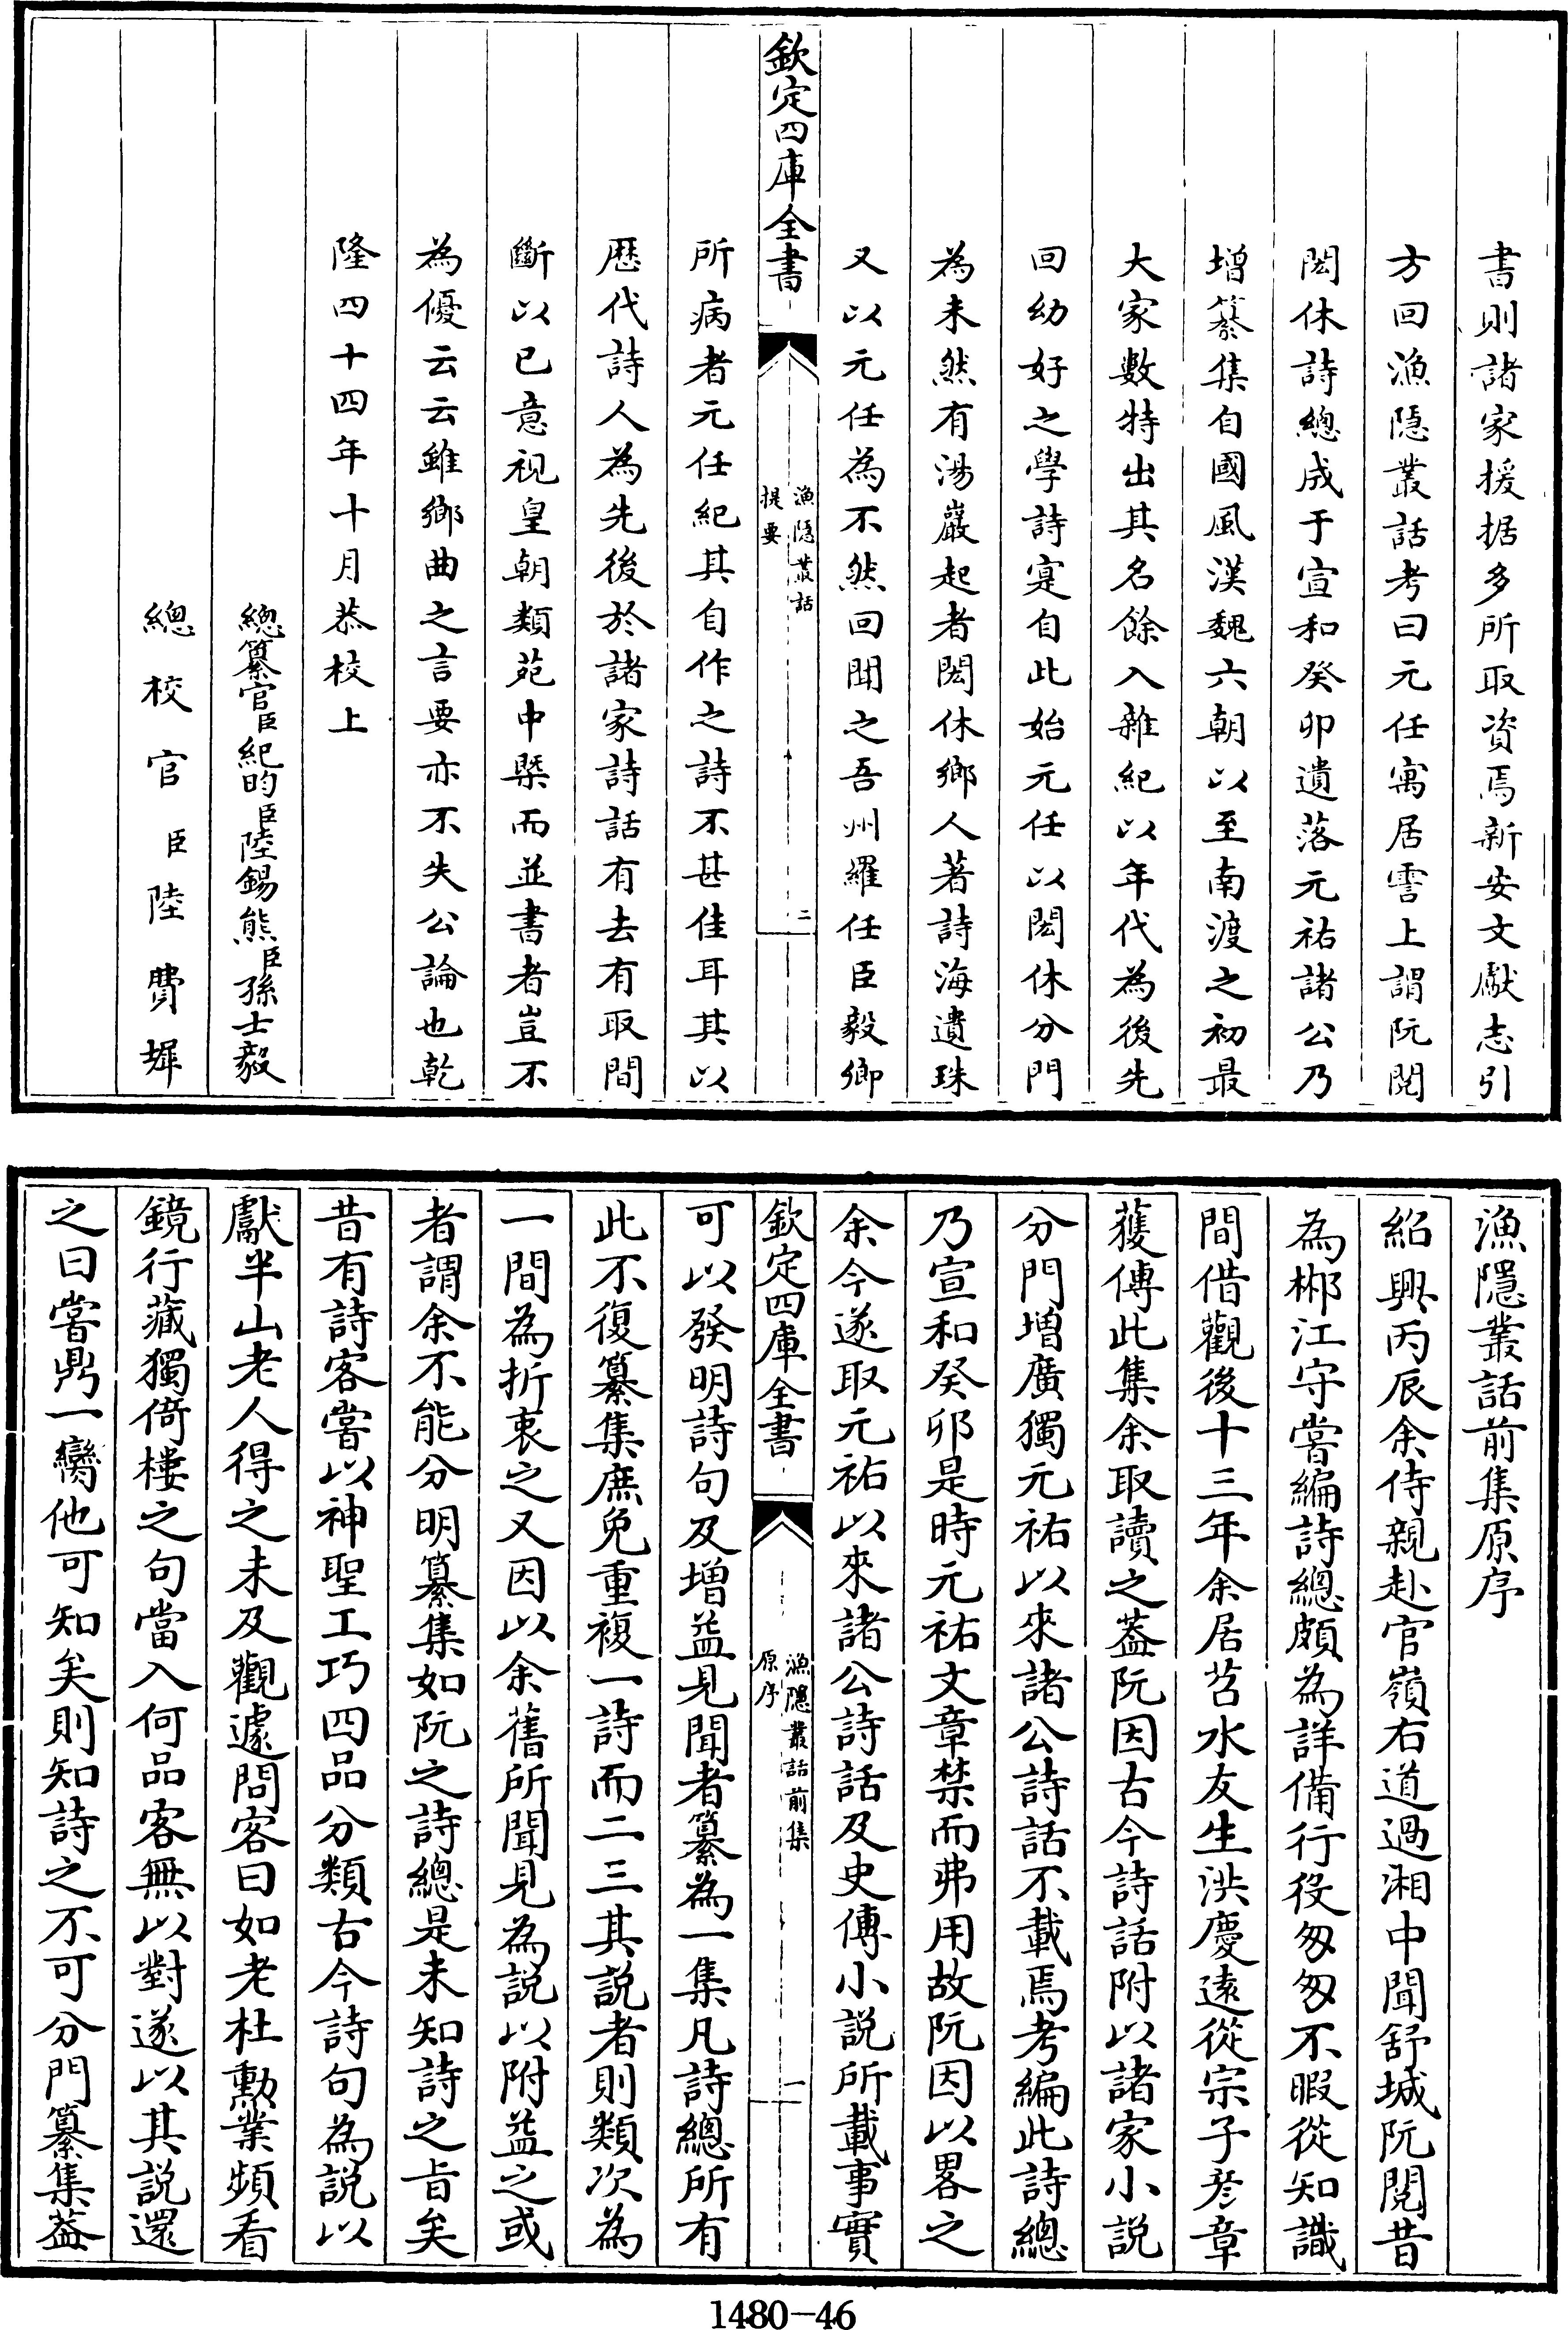 書則諸家援据多所取資焉新安文獻志引
方回漁隱叢話考曰元任寓居霅上謂阮閱
閎休詩總成于宣和癸卯遺落元祐諸公乃
增纂集自國風漢魏六朝以至南渡之初最
大家數特出其名餘入雜紀以年代為後先
回幼好之學詩寔自此始元任以閎休分門
為未然有湯巖起者閎休鄉人著詩海遺珠
又以元任為不然回聞之吾州羅任臣毅卿
欽定四庫全書
漁隱叢話
提要
二
所病者元任紀其自作之詩不甚佳耳其以
歷代詩人為先後於諸家詩話有去有取間
斷以已意視皇朝類苑中槩而並書者豈不
為優云云雖鄉曲之言要亦不失公論也乾
隆四十四年十月恭校上
總纂官臣紀昀臣陸錫熊臣孫士毅
總校官臣陸費墀
漁隱叢話前集原序
紹興丙辰余侍親赴官嶺右道過湘中聞舒城阮閱昔
為郴江守嘗編詩總頗為詳備行役匆匆不暇從知識
間借觀後十三年余居苕水友生洪慶遠從宗子彥章
獲傳此集余取讀之蓋阮因古今詩話附以諸家小說
分門增廣獨元祐以來諸公詩話不載焉考編此詩總
乃宣和癸卯是時元祐文章禁而弗用故阮因以畧之
余今遂取元祐以來諸公詩話及史傳小說所載事實
欽定四庫全書
漁隱叢話前集
原序
一
可以發明詩句及增益見聞者纂為一集凡詩總所有
此不復纂集庶免重複一詩而二三其說者則類次為
一間為折衷之又因以余舊所聞見為說以附益之或
者謂余不能分明纂集如阮之詩總是未知詩之旨矣
昔有詩客嘗以神聖工巧四品分類古今詩句為說以
獻半山老人得之未及觀遽問客曰如老杜勲業頻看
鏡行藏獨倚樓之句當入何品客無以對遂以其說還
之曰嘗鼎一臠他可知矣則知詩之不可分門纂集蓋
1480-46